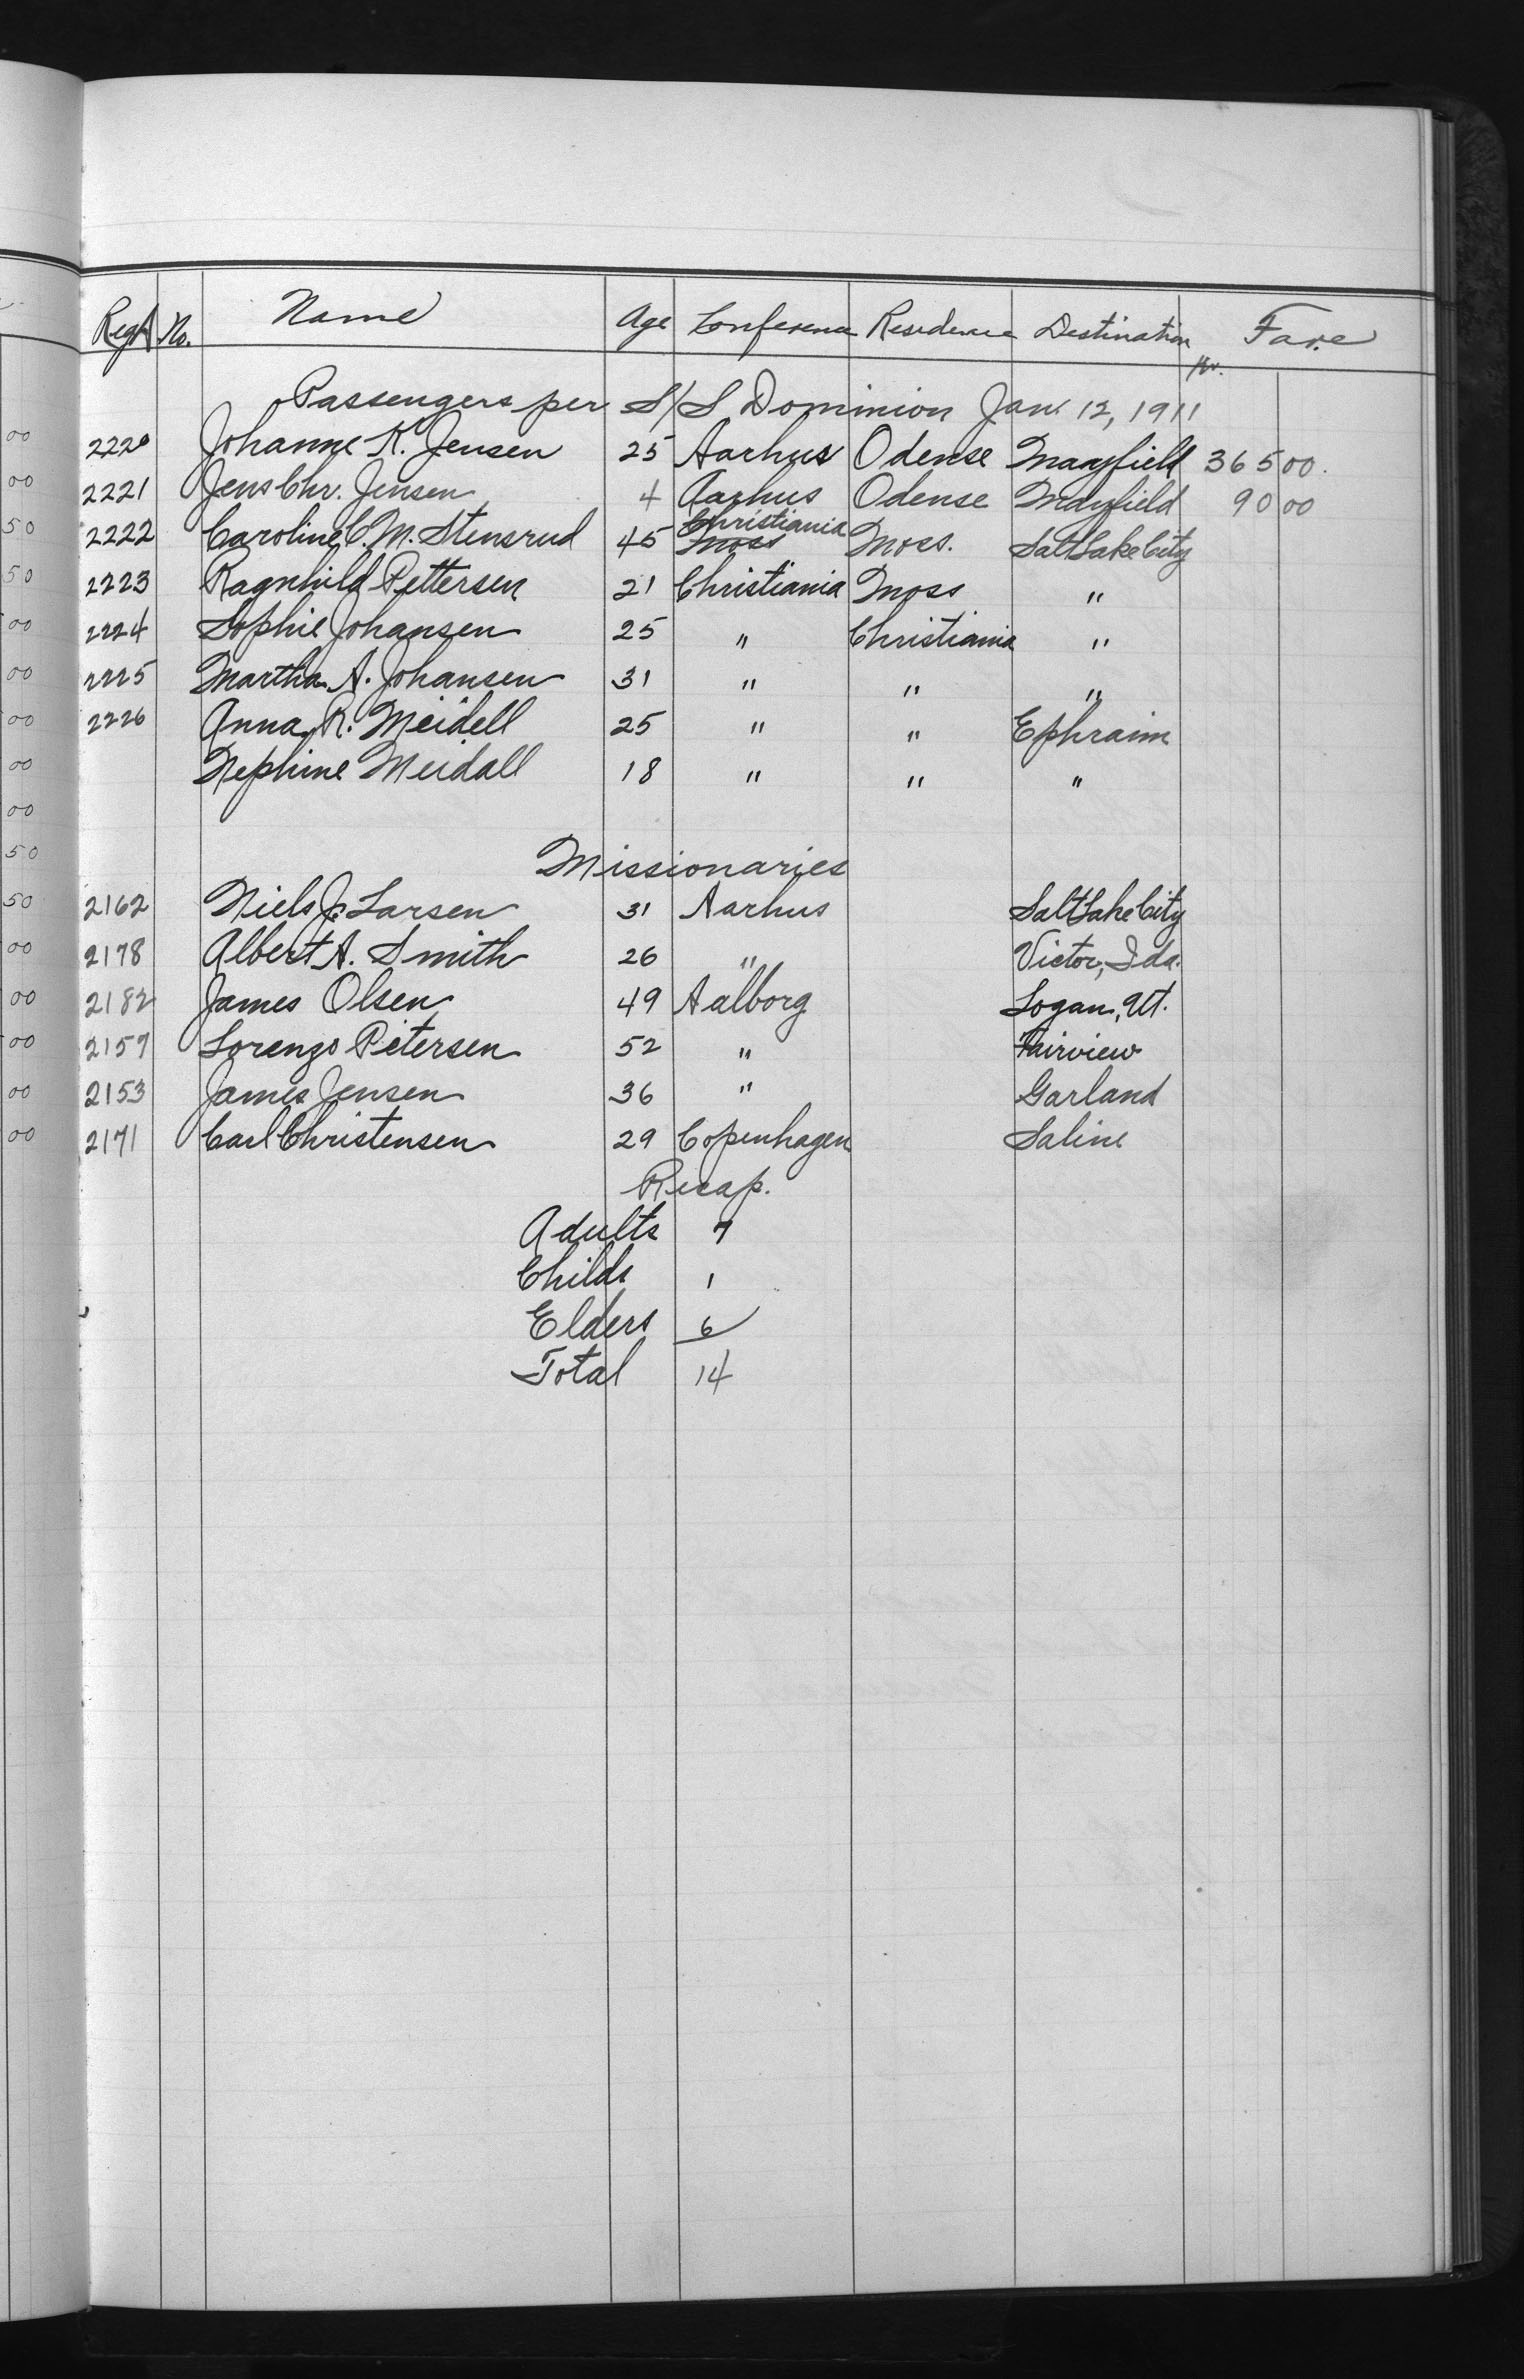 Regt No. Name Age Conference Residence Destination Fare
Kr.
Passengers per S/S Dominion Jan. 12, 1911
2220 Johanne K. Jensen 25 Aarhus Odense Mayfield 365 00.
2221 Jens Chr. Jensen 4 Aarhus Odense Mayfield 90 00
2222 Caroline C. M. Stensrud 45 Moss Christiania Moss. Salt Lake City
2223 Ragnhild Pettersen 21 Christiania Moss "
2224 Sophie Johansen 25 " Christiania "
2225 Martha A. Johansen 31 " " "
2226 Anna R. Meidell 25 " " Ephraim
Nephine Meidall 18 " " "
Missionaries
2162 Niels J. Larsen 31 Aarhus Salt Lake City
2178 Albert A. Smith 26 " Victor, Ida.
2182 James Olsen 49 Aalborg Logan, Ut.
2157 Lorenzo Petersen 52 " Fairview
2153 James Jensen 36 " Garland
2171 Carl Christensen 29 Copenhagen Saline
Recap.
Adults 7
Childs 1
Elders 6
Total 14
00
00
50
50
00
00
00
00
00
50
50
00
00
00
00
00